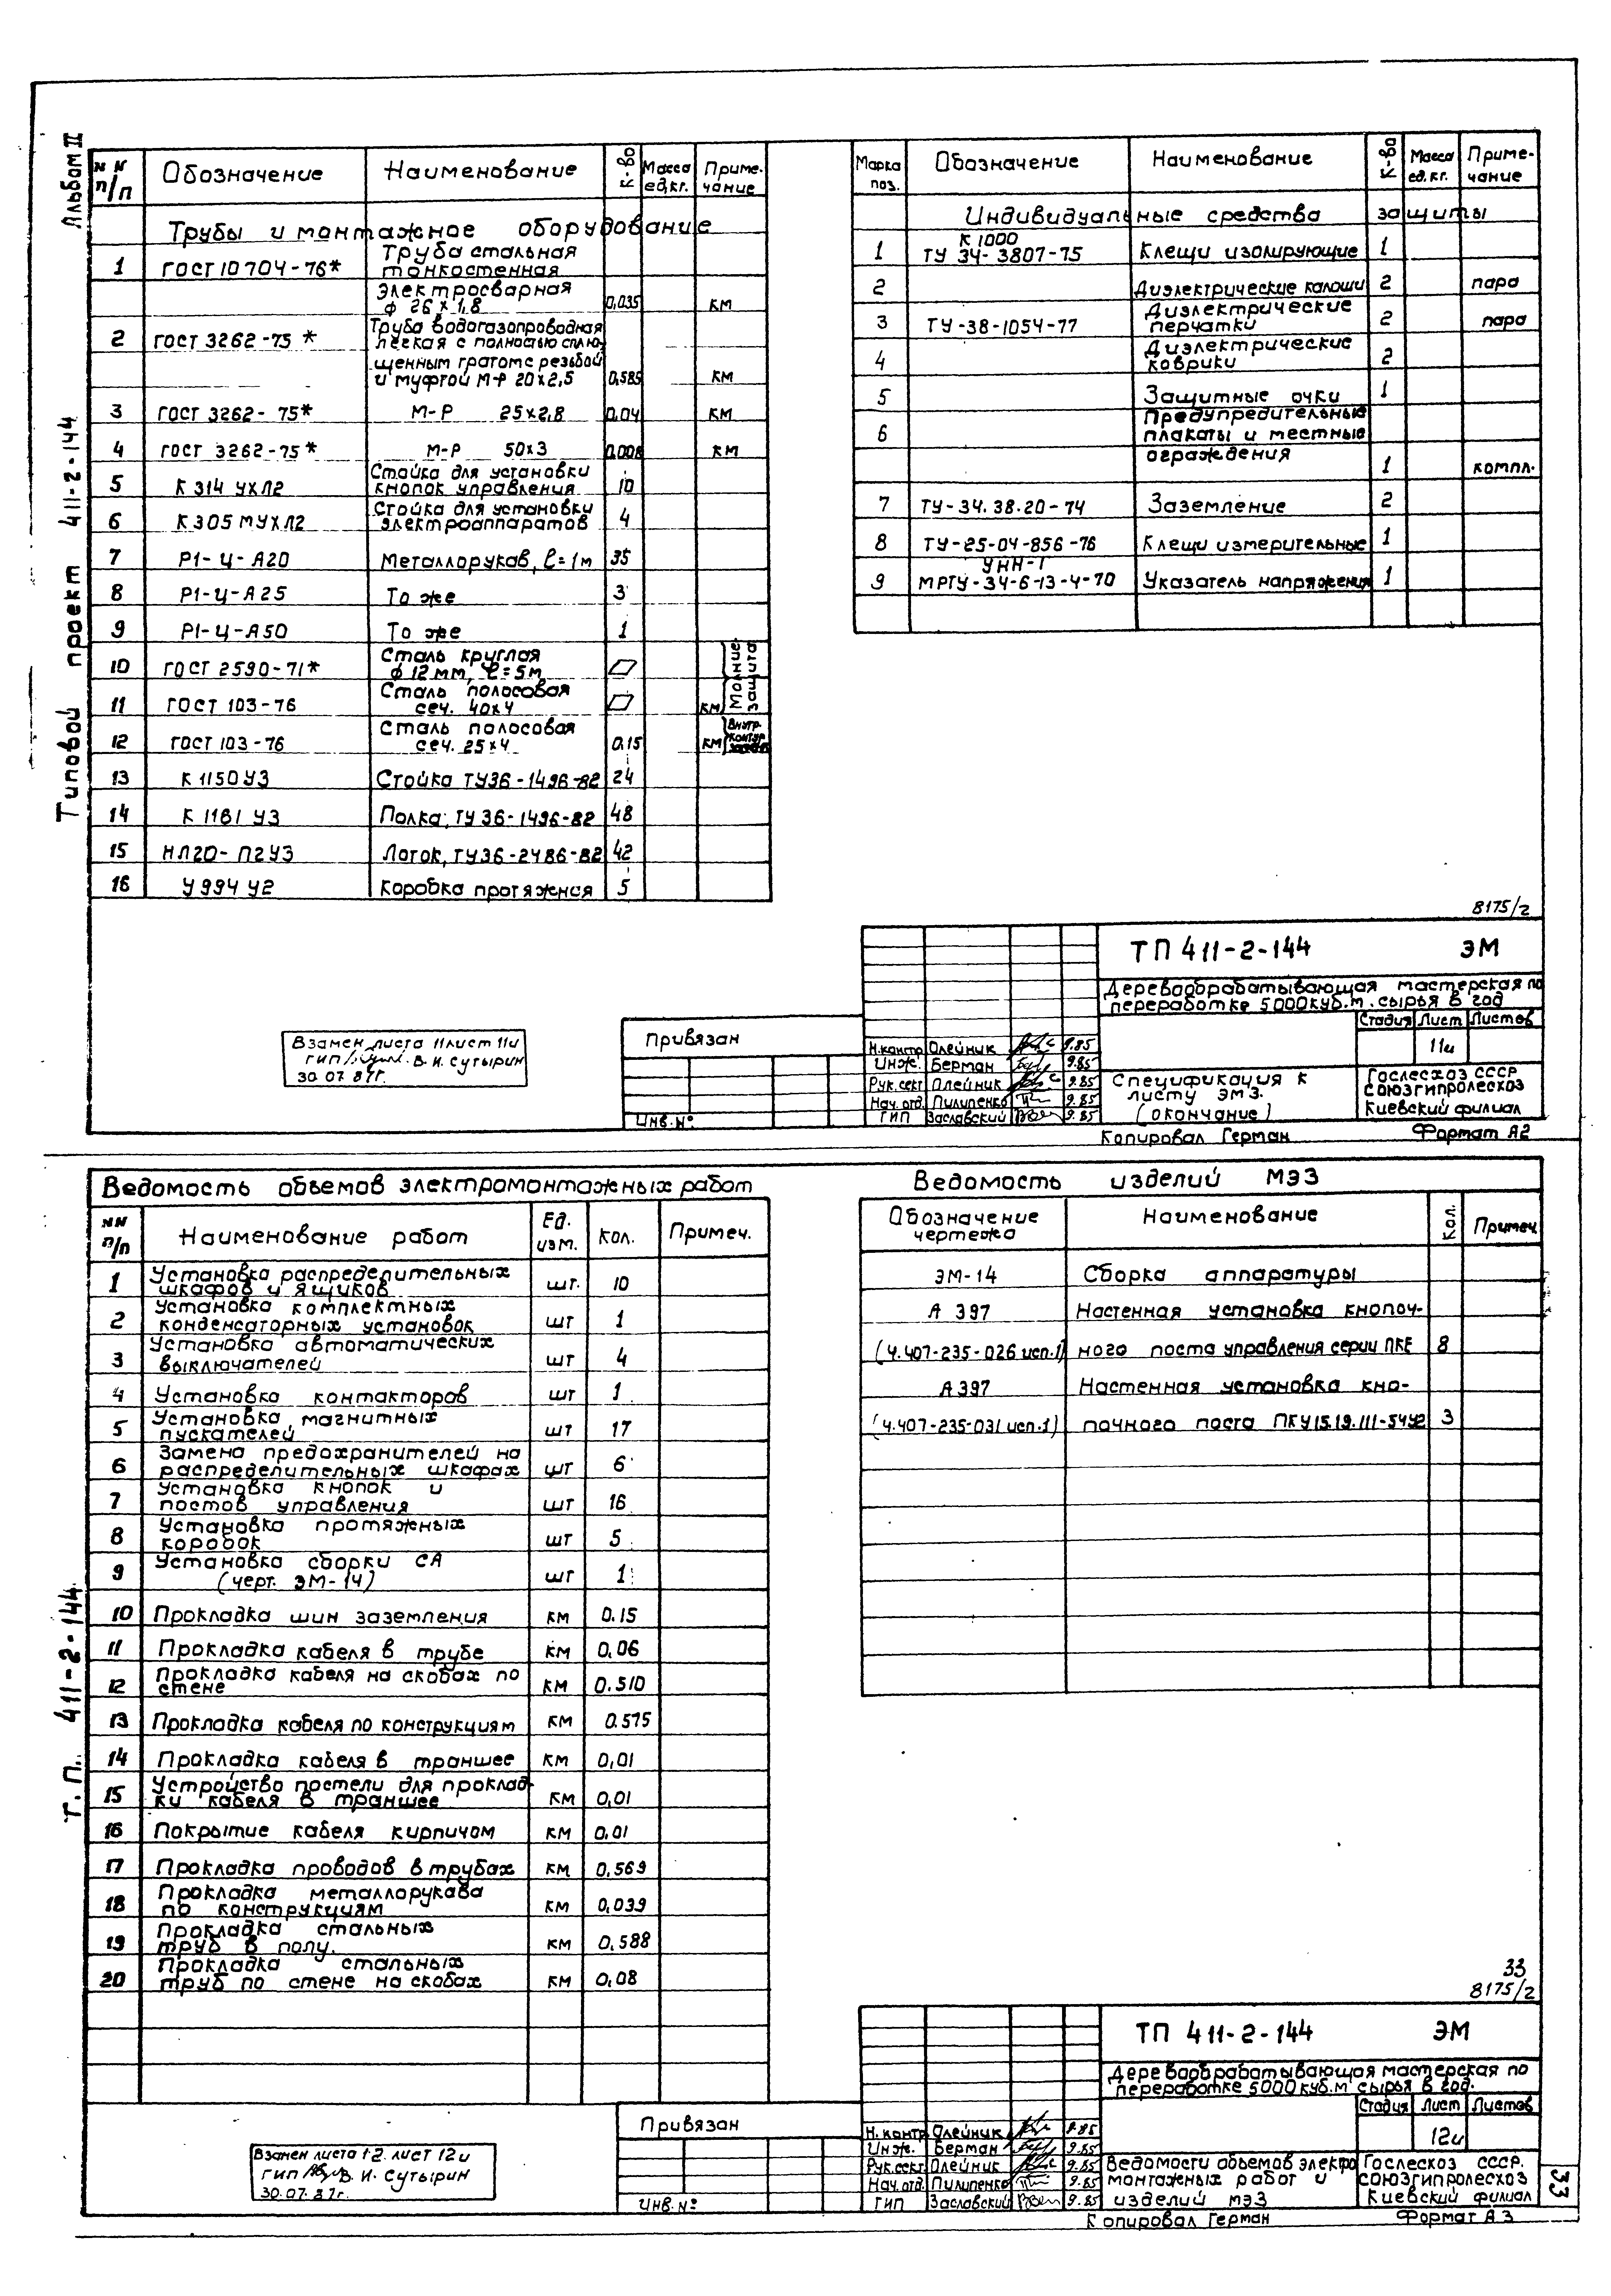 Альбом II
Типовой проект 411-2-144
NN п/п Обозначение Наименование К-во Масса ед.кг. Приме-чание
Трубы и монтажное оборудование
1 ГОСТ 10704-76* Труба стальная тонкостенная
электросварная ф 26×1,8 0,035 км
2 ГОСТ 3262-75* Труба водогазопроводная легкая с полностью сплю-
щенным гратом с резьбой и муфтой М-Р 20×2,5 0,585 км
3 ГОСТ 3262-75* М-Р 25×2,8 0,04 км
4 ГОСТ 3262-75* М-Р 50×3 0,008 км
5 К 314 УХЛ2 Стойка для установки кнопок управления 10
6 К305 МУХЛ2 Стойка для установки электроаппаратов 4
7 Р1-Ц-А20 Металлорукав, ℓ=1м 35
8 Р1-Ц-А25 То же 3
9 Р1-Ц-А50 То же 1
10 ГОСТ 2590-71* Сталь круглая ф 12мм, ℓ=5м
11 ГОСТ 103-76 Сталь полосовая сеч. 40×4 км Молние-защита
12 ГОСТ 103-76 Сталь полосовая сеч. 25×4 0.15 км Внутр. контур
13 К 1150У3 Стойка ТУ36-1496-82 24
14 К 1161 У3 Полка, ТУ 36-1496-82 48
15 НЛ20-П2У3 Лоток, ТУ36-2486-82 42
16 У994 У2 Коробка протяжная 5
Марка поз. Обозначение Наименование К-во Масса ед.кг. Приме-чание
Индивидуальные средства защиты
1 К 1000 ТУ 34-3807-75 Клещи изолирующие 1
2 Диэлектрические калоши 2 пара
3 ТУ-38-1054-77 Диэлектрические перчатки 2 пара
4 Диэлектрические коврики 2
5 Защитные очки 1
6 Предупредительные плакаты и местные
ограждения 1 компл.
7 ТУ-34.38.20-74 Заземление 2
8 ТУ-25-04-856-76 Клещи измерительные 1
9 УНН-1 МРТУ-34-6-13-4-70 Указатель напряжения 1
8175/2
ТП 411-2-144 ЭМ
Деревообрабатывающая мастерская по
переработке 5000куб.м. сырья в год
Стадия Лист Листов
11и
Спецификация к
листу ЭМ3.
(окончание)
Гослесхоз СССР
Союзгипролесхоз
Киевский филиал
Н.контр Олейник 9.85
Инж. Берман 9.85
Рук.сект Олейник 9.85
Нач.отд. Пилипенко 9.85
ГИП Заславский 9.85
Привязан
Инв.N°
Взамен листа 11 лист 11и
ГИП В. И. Сутырин
30.07.87г.
Копировал Герман Формат А2
Т. П. 411-2-144
Ведомость объемов электромонтажных работ
NN п/п Наименование работ Ед. изм. Кол. Примеч.
1 Установка распределительных шкафов и ящиков шт. 10
2 Установка комплектных конденсаторных установок шт 1
3 Установка автоматических выключателей шт 4
4 Установка контакторов шт 1
5 Установка магнитных пускателей шт 17
6 Замена предохранителей на распределительных шкафах шт 6
7 Установка кнопок и постов управления шт 16
8 Установка протяжных коробок шт 5
9 Установка сборки СА (черт. ЭМ-14) шт 1
10 Прокладка шин заземления км 0.15
11 Прокладка кабеля в трубе км 0,06
12 Прокладка кабеля на скобах по стене км 0.510
13 Прокладка кабеля по конструкциям км 0.575
14 Прокладка кабеля в траншее км 0,01
15 Устройство постели для проклад-ки кабеля в траншее км 0,01
16 Покрытие кабеля кирпичом км 0.01
17 Прокладка проводов в трубах км 0,569
18 Прокладка металлорукава по конструкциям км 0,039
19 Прокладка стальных труб в полу. км 0,588
20 Прокладка стальных труб по стене на скобах км 0,08
Ведомость изделий МЭЗ
Обозначение чертежа Наименование Кол. Примеч.
ЭМ-14 Сборка аппаратуры
А 397 Настенная установка кнопоч-
(4.407-235-026 исп.1) ного поста управления серии ПКЕ 8
А 397 Настенная установка кно-
(4.407-235-031 исп.1) почного поста ПКУ15.19.111-54У2 3
33
8175/2
ТП 411-2-144 ЭМ
Деревообрабатывающая мастерская по
переработке 5000куб.м сырья в год.
Стадия Лист Листов
12и
Ведомости объемов электро
монтажных работ и
изделий МЭЗ
Гослесхоз СССР.
Союзгипролесхоз
Киевский филиал
Н. контр Олейник 9.85
Инж. Берман 9.85
Рук.сект. Олейник 9.85
Нач.отд. Пилипенко 9.85
ГИП Заславский 9.85
Привязан
Инв.N°
Взамен листа 12 лист 12и
ГИП В. И. Сутырин
30.07.87г.
Копировал Герман Формат А3
33